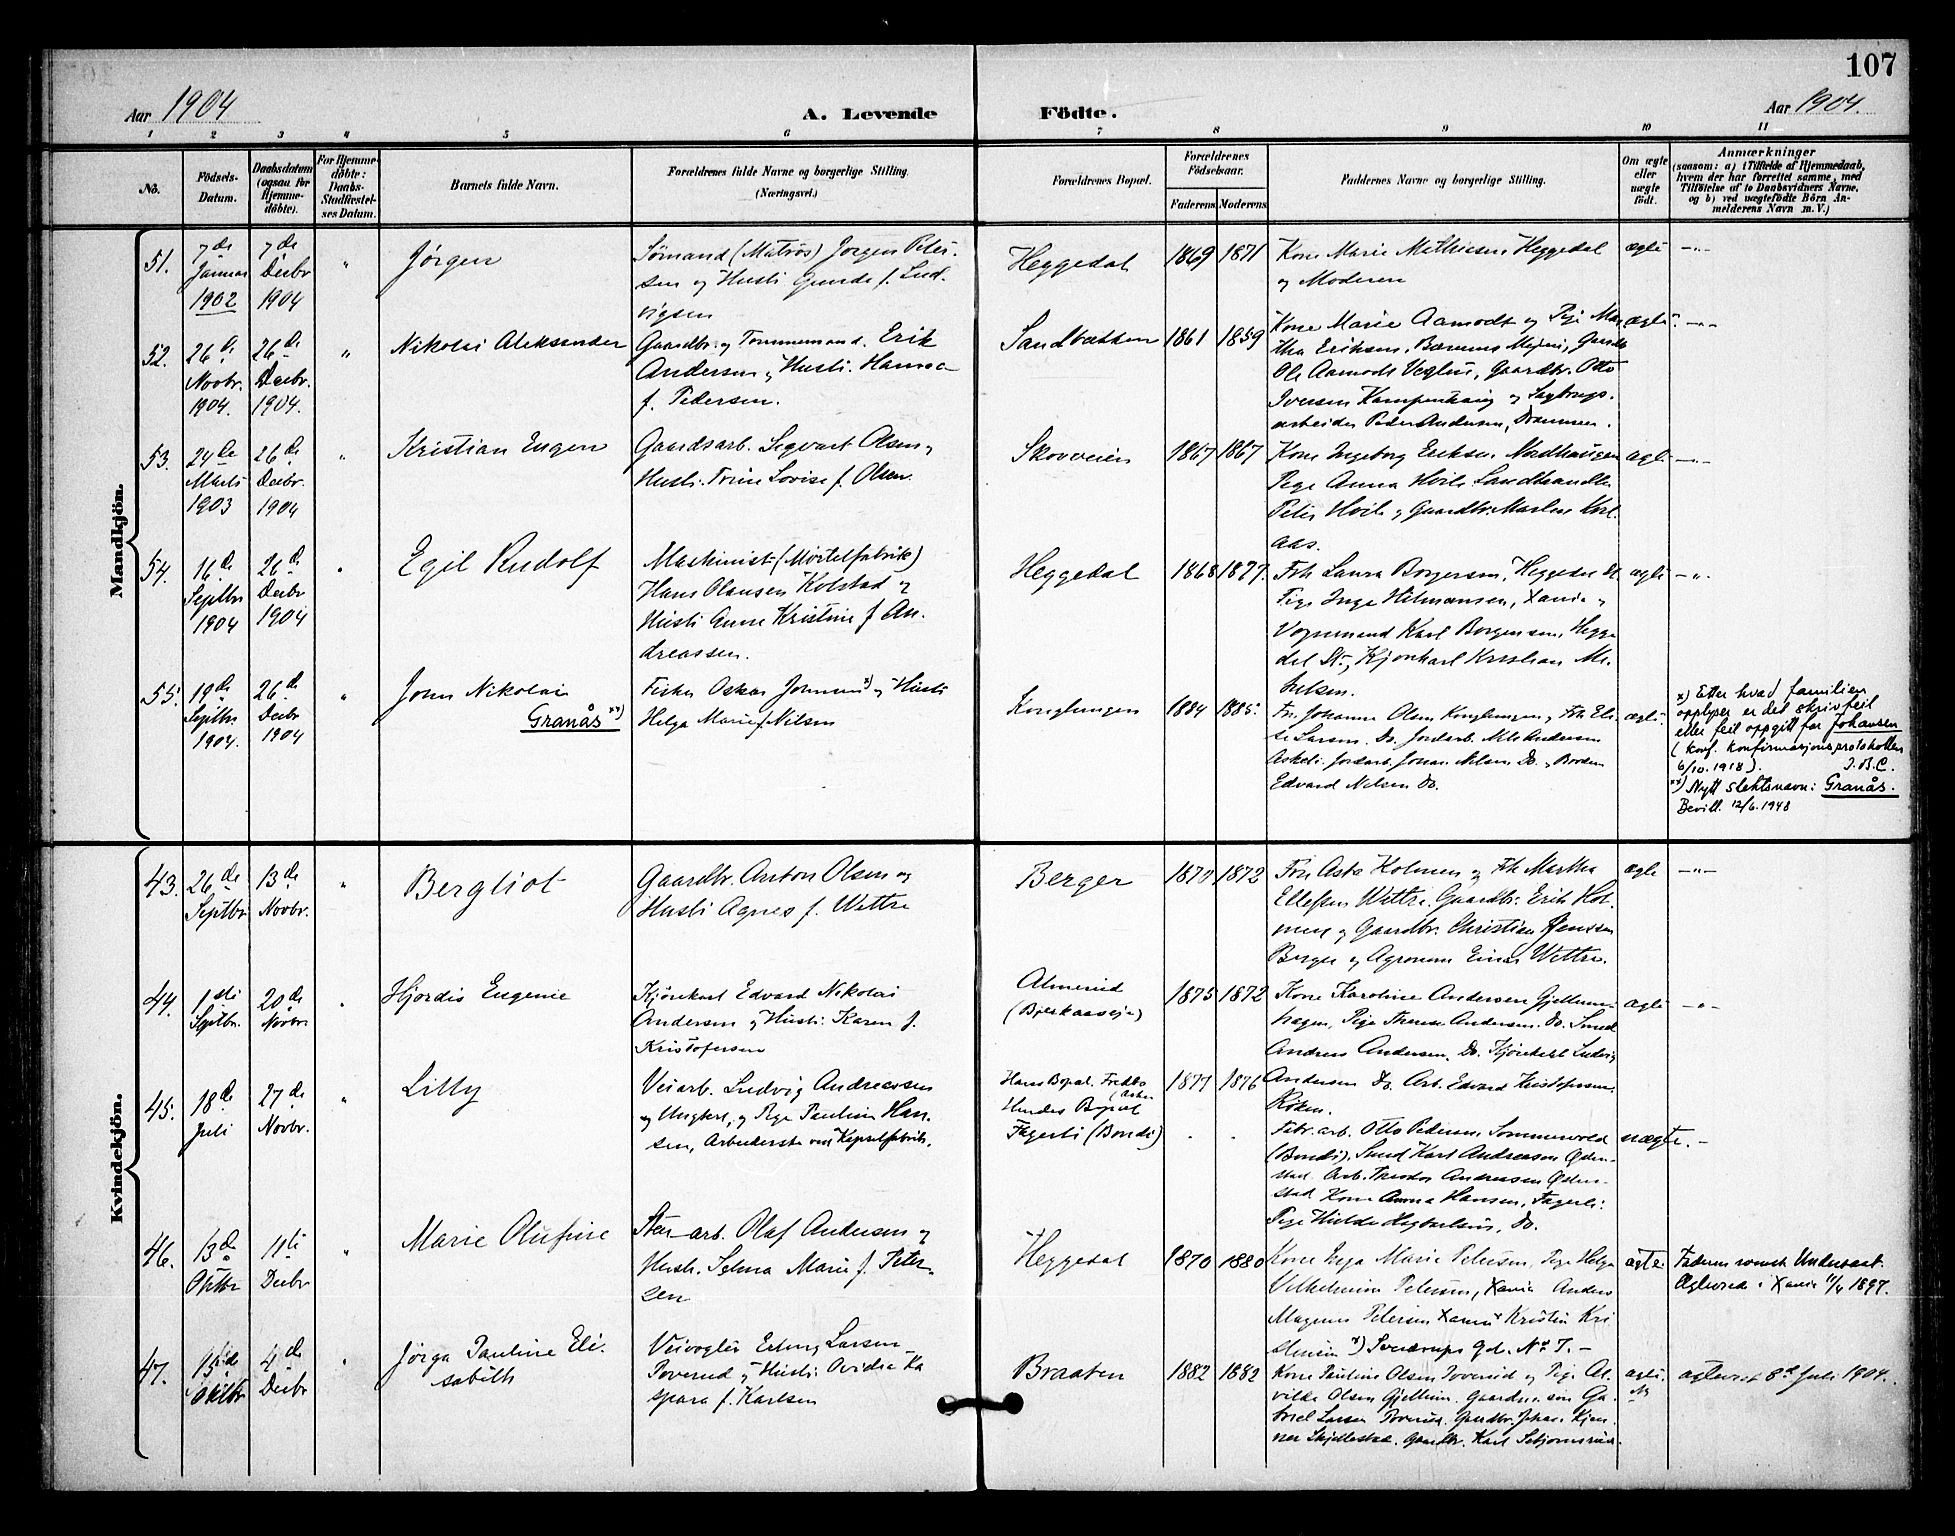 107
Aar 1904
A. Levende
Födte.
Aar 1904.
1 2 3 4 5 6 7 8 9 10 11
No.
Födsels-
Datum.
Daabsdatum
(ogsaa for
Hjemme-
döbte).
For Hjemme-
döbte:
Daabs-
Stadfæstel-
ses Datum.
Barnets fulde Navn.
Forældrenes fulde Navne og borgerlige Stilling.
(Næringsvei.)
Forældrenes Bopæl.
Forældrenes
Födselsaar.
Faderens Moderens
Faddernes Navne og borgerlige Stilling.
Om ægte
eller
uægte
födt.
Anmærkninger
(saasom: a) i Tilfælde af Hjemmedaab,
hvem der har forrettet samme, med
Tilföielse af to Daabsvidners Navne,
og b) ved uægtefödte Börn An-
melderens Navn m. V.)
Mandkjön.
51.
7de
Januar
1902
7de
Decbr
1904
"
Jörgen
Sömand (Matros) Jorgen Peter-
sen og Hustr. Gunda f. Lud-
vigsen
Heggedal
1869
1871
Kone Marie Mathiesen, Heggedal
og Moderen
ægte
—"—
52.
26de
Novbr.
1904.
26de
Decbr.
1904.
"
Nikolai Aleksander
Gaardbr. og Tömmermand. Erik
Andersen og Hustr. Hanna
f. Pedersen.
Sandbakken
1861
1859
Kone Marie Aamodt og Pige Mar-
tha Eriksen, Bærums Gaardb.
Ole Aamodt Gaardbr. Otto
Iversen og Sagbrugs.
arbeider Peder Andersen, Drammen.
ægte
—"—
53.
24de
Marts
1903
26de
Decbr.
1904
"
Kristian Eugen
Gaardsarb. Sigvart Olsen og
Hustr. Trine Lovise f. Olsen.
Skovveien
1867
1867
Kone Ingeborg Eriksen Nordhaugen
Pige Anna Hvile Landhandler
Peter Hvile og Gaardbr.
aas.
ægte
—"—
54.
16de
Septbr
1904
26de
Decbr
1904
"
Egil Rudolf
Maskinist (Mörtelfabrik)
Hans Olausen Kolstad og
Hustr. Anne Kristine f. An-
dreassen.
Heggedal
1868
1877.
Frk Laura Borgersen, Heggedal St
Pige Inga Hilmansen, Xania og
Vognmand Karl Borgersen, Hegge
dal St., Kjörekarl Kristian Mi-
kelsen.
ægte
—"—
55.
19de
Septbr
1904.
26de
Decbr
1904
"
John Nikolai
Granås xx)
Fisker Oskar Johnsen x) og Hustr.
Helga Marie f. Nilsen
Konglungen
1884
1885.
Fru Johanne Olsen Konglungen og Frk Eli-
se Larsen. Do. Jordarb. Nils Andersen
Jordarb. Johan Nilsen Do. og
Edvard Nilsen Do.
ægte
x) Etter hvad familien
opplyser er det skrivfeil
eller feil oppgitt for Johansen
(konf. konfirmasjonsprotokollen
6/10.1918). J.B.C.
xx) Nytt slektsnavn: Granås.
Bevill. 12/6.1948
Kvindekjön.
43.
26de
Septbr
13de
Novbr.
"
Bergliot
Gaardbr. Anton Olsen og
Hustr. Agnes f. Wettre
Berger
1870
1872
Fru Asta Holmen og Frk Martha
Ellefsen Wettre. Gaardbr. Erik Hol-
men og Gaardbr. Christian Jenssen
Berger og Agronom Einar Wettre.
ægte
—"—
44.
1ste
Septbr.
20de
Novbr
"
Hjördis Eugenie
Kjörekarl Edvard Nikolai
Andersen og Hustr. Karen f.
Kristofersen
Almerud
1875
1872
Kone Karoline Andersen Gjellum-
hagen, Pige Therese Andersen. Do. Smed
Andreas Andersen. Do. Kjörekarl Ludvig
Andersen Do. Arb. Edvard Kristofersen
Röken.
ægte
—"—
45.
18de
Juli
27de
Novbr.
"
Lilly
Veiarb. Ludvig Andreassen
og Ungkarl, og Pige Pauline Han-
sen, Arbeiderske ved Kapselfabrik.
Hans Bopæl. Fredbo
(Asker
Hendes Bopæl
Fagerli (Bondi)
1877
1876
Fabr. arb. Otto Pedersen, Sommervold
(Bondi), Smed Karl Andreasen
Arb. Theodor Andreasen
Kone Anna Hansen, Fagerli.
uægte.
—
46.
13de
Oktbr
11te
Decbr
"
Marie Olufine
Stenarb. Olaf Andersen og
Hustr. Selma Marie f. Peter-
sen
Heggedal
1870
1880
Kone Inga Marie Petersen, Pige Helga
Vilhelmine Petersen, Xania Anders
Magnus Petersen Xania Kristin Kri
Sverdrups Gd. No 7. —
ægte
Faderen romersk
Xania 11/4 1897.
47.
15de
4de
Decbr
"
Jörga Pauline Eli-
sabeth
Larsen
Poverud og Hustr. Ovidia Ka
spara f. Karlsen
Braaten
1882
1882
Kone Pauline Olsen Poverud og Pige Al-
vilde Olsen Gjellum. Gaardeierson Ga-
briel Larsen Poverud. Gaardbr. Johan
Gaardbr. Karl
ægte.
ægteviet 8de Juli 1904.